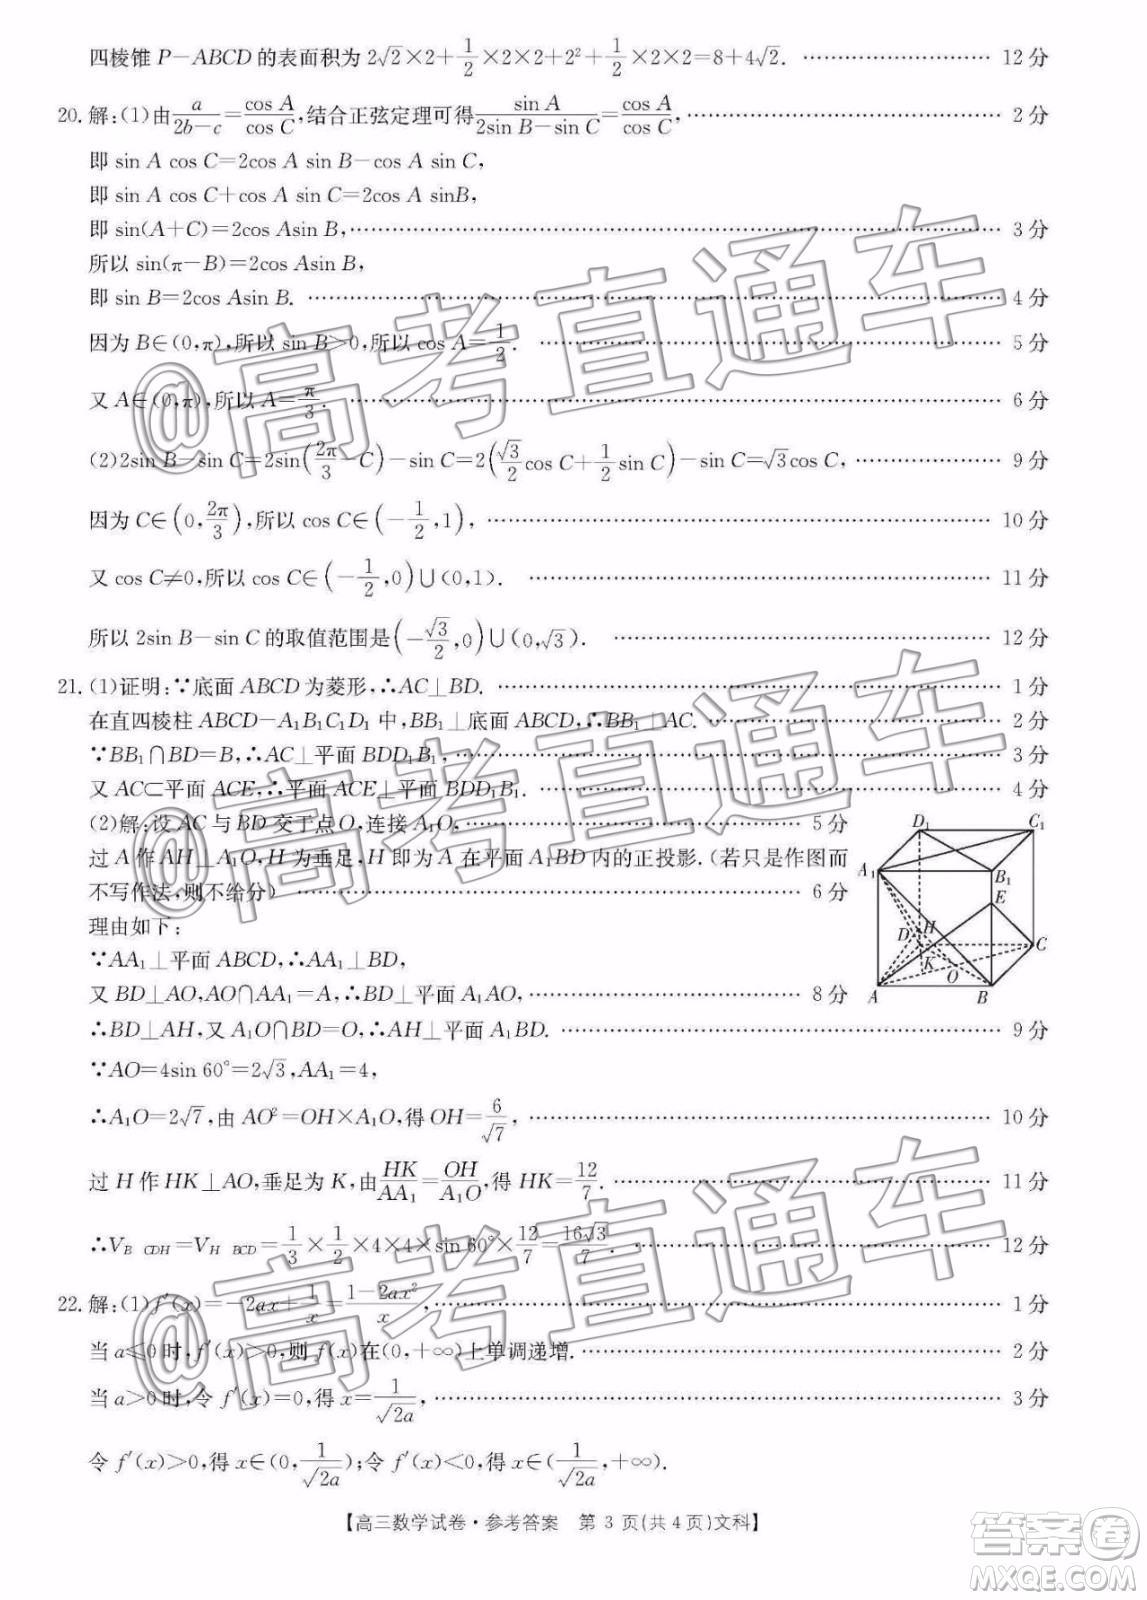 四棱锥 P-ABCD 的表面积为 2√2×2+1/2×2×2+2²+1/2×2×2√2=8+4√2. …… 12 分
20. 解:(1)由 a/(2b-c)=cos A/cos C,结合正弦定理可得 sin A/(2sin B-sin C)=cos A/cos C, …… 2 分
即 sin A cos C=2cos A sin B-cos A sin C,
即 sin A cos C+cos A sin C=2cos A sinB,
即 sin(A+C)=2cos Asin B, …… 3 分
所以 sin(π-B)=2cos Asin B,
即 sin B=2cos Asin B. …… 4 分
因为 B∈(0,π),所以 sin B>0,所以 cos A=1/2. …… 5 分
又 A∈(0,π),所以 A=π/3. …… 6 分
(2)2sin B-sin C=2sin(2π/3-C)-sin C=2(√3/2 cos C+1/2 sin C)-sin C=√3cos C, …… 9 分
因为 C∈(0,2π/3),所以 cos C∈(-1/2,1), …… 10 分
又 cos C≠0,所以 cos C∈(-1/2,0)∪(0,1). …… 11 分
所以 2sin B-sin C 的取值范围是(-√3/2,0)∪(0,√3). …… 12 分
21. (1)证明:∵底面 ABCD 为菱形,∴AC⊥BD. …… 1 分
在直四棱柱 ABCD-A₁B₁C₁D₁ 中,BB₁⊥底面 ABCD,∴BB₁⊥AC. …… 2 分
∵BB₁∩BD=B,∴AC⊥平面 BDD₁B₁, …… 3 分
又 AC⊂平面 ACE,∴平面 ACE⊥平面 BDD₁B₁. …… 4 分
(2)解:设 AC 与 BD 交于点 O,连接 A₁O, …… 5 分
过 A 作 AH⊥A₁O,H 为垂足,H 即为 A 在平面 A₁BD 内的正投影.(若只是作图而
不写作法,则不给分) …… 6 分
理由如下:
∵AA₁⊥平面 ABCD,∴AA₁⊥BD,
又 BD⊥AO,AO∩AA₁=A,∴BD⊥平面 A₁AO, …… 8 分
D₁ C₁
A₁ B₁
E
D H C
K O
A B
∴BD⊥AH,又 A₁O∩BD=O,∴AH⊥平面 A₁BD. …… 9 分
∵AO=4sin 60°=2√3,AA₁=4,
∴A₁O=2√7,由 AO²=OH×A₁O,得 OH=6/√7, …… 10 分
过 H 作 HK⊥AO,垂足为 K,由 HK/AA₁=OH/A₁O,得 HK=12/7. …… 11 分
∴V_B CDH=V_H BCD=1/3×1/2×4×4×sin 60°×12/7=16√3/7. …… 12 分
22. 解:(1)f′(x)=-2ax+1/x=(1-2ax²)/x, …… 1 分
当 a≤0 时,f′(x)>0,则 f(x)在(0,+∞)上单调递增. …… 2 分
当 a>0 时,令 f′(x)=0,得 x=1/√2a, …… 3 分
令 f′(x)>0,得 x∈(0,1/√2a);令 f′(x)<0,得 x∈(1/√2a,+∞).
【高三数学试卷·参考答案 第 3 页(共 4 页)文科】
@高考直通车
@高考直通车
@高考直通车
答案卷
MXQE.COM